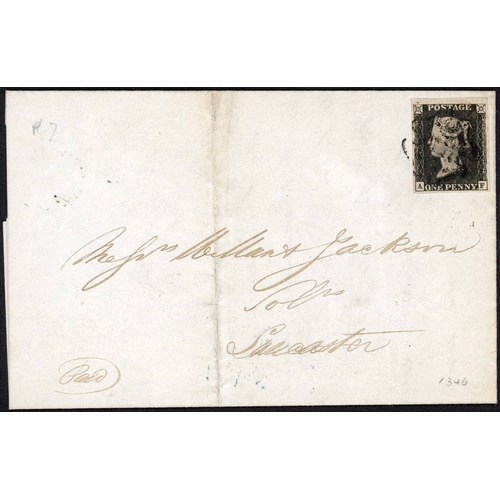 P. 7
POSTAGE
ONE PENNY
A F
Messrs & Jackson
Solrs
Lancaster
Paid
1346